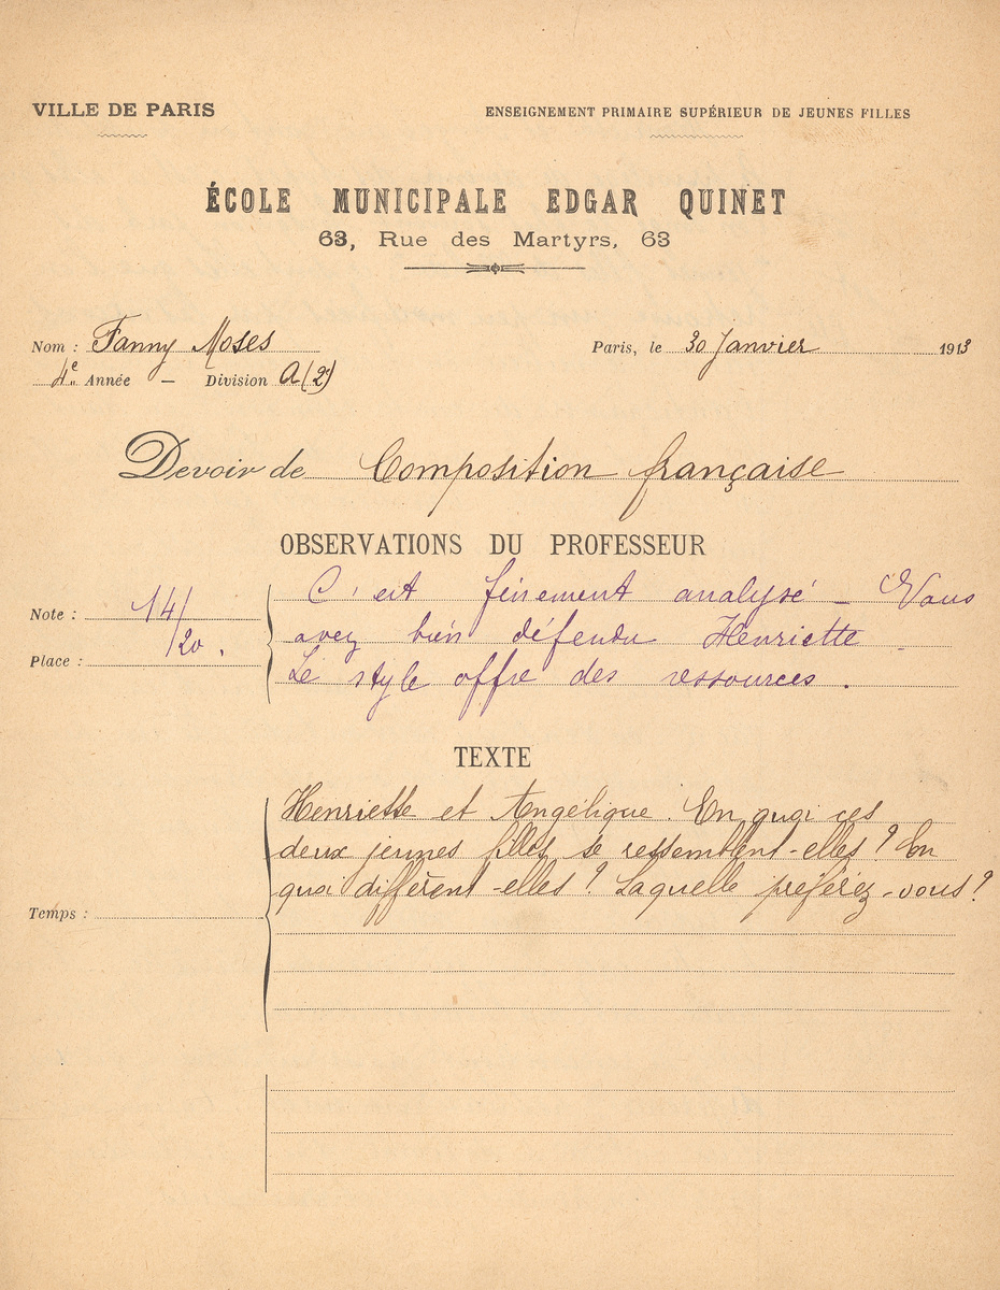 VILLE DE PARIS
ENSEIGNEMENT PRIMAIRE SUPÉRIEUR DE JEUNES FILLES
ÉCOLE MUNICIPALE EDGAR QUINET
63, Rue des Martyrs, 63
Nom : Fanny Moses
Paris, le 30 Janvier 1913
4e Année — Division A (2e)
Devoir de Composition française
OBSERVATIONS DU PROFESSEUR
Note : 14/20.
Place :
C'est finement analysé — Vous
avez bien défendu Henriette.
Le style offre des ressources.
TEXTE
Henriette et Angélique. En quoi ces
deux jeunes filles se ressemblent-elles ? En
quoi diffèrent-elles ? Laquelle préférez-vous ?
Temps :